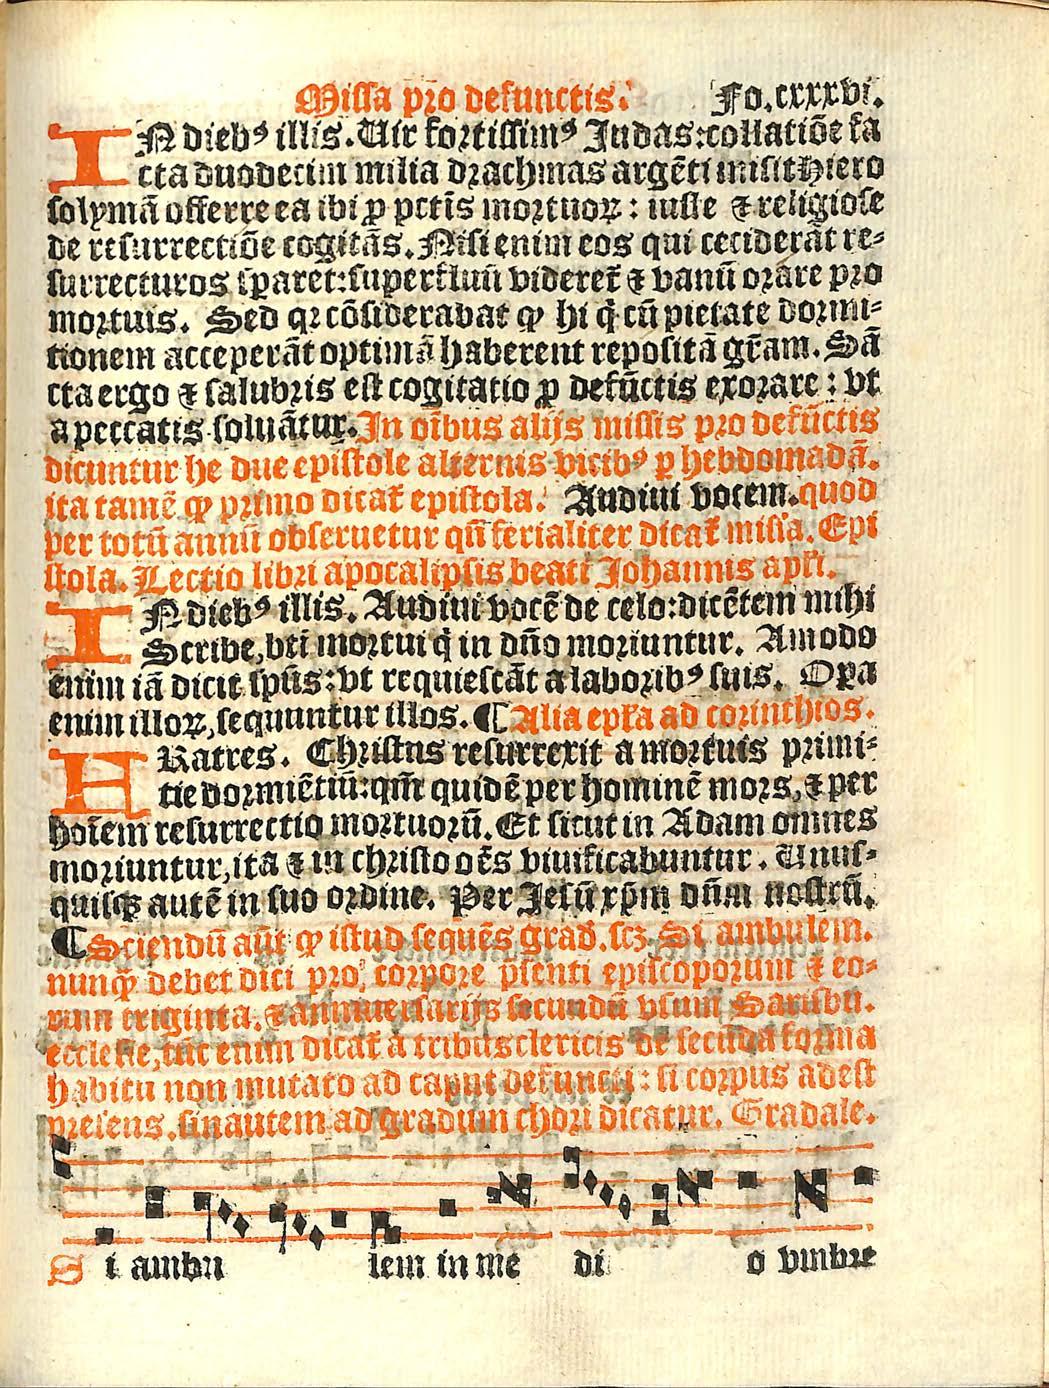 Missa pro defunctis. Fo.cxxxvi.
IN dieb⁹ illis. Uir fortissim⁹ Judas: collatiōe fa
cta duodecim milia drachmas argēti misit Hiero
solymā offerre ea ibi ꝑ pctīs mortuoꝝ: iuste ⁊ religiose
de resurrectiōe cogitās. Nisi enim eos qui ceciderāt re⸗
surrecturos sꝑaret: superfluū videret̄ ⁊ vanū orare pro
mortuis. Sed qꝛ cōsiderabat ꝙ hi q̄ cū pietate dormi⸗
tionem acceperāt optimā haberent repositā gr̄am. Sā
cta ergo ⁊ salubris est cogitatio ꝑ defūctis exorare: vt
a peccatis soluātur. In oībus alijs missis pro defūctis
dicuntur he due epistole alternis vicib⁹ ꝑ hebdomadā.
ita tamē ꝙ primo dicat̄ epistola. Audiui vocem. quod
per totū annū obseruetur qn̄ ferialiter dicat̄ missa. Epi
stola. Lectio libri apocalipsis beati Johannis apl̄i.
IN dieb⁹ illis. Audiui vocē de celo: dicētem mihi
Scribe, btī mortui q̄ in dn̄o moriuntur. Amodo
enim iā dicit spūs: vt requiescāt a laborib⁹ suis. Oꝑa
enim illoꝝ, sequuntur illos. ¶ Alia ep̄la ad corinthios.
FRatres. Christus resurrexit a mortuis primi⸗
tie dormiētiū: qm̄ quidē per hominē mors, ⁊ per
hoīem resurrectio mortuorū. Et sicut in Adam omnes
moriuntur, ita ⁊ in christo oēs viuificabuntur. Unus⸗
quisqꝫ autē in suo ordine. Per Jesū xp̄m dn̄m nostrū.
¶ Sciendū aūt ꝙ istud sequēs grad̄. scꝫ. Si ambulem.
nunꝙ̄ debet dici pro corpore p̄senti episcoporum ⁊ eo⸗
rum triginta. ⁊ anniuersarijs secundū vsum Sarisbu.
ecclesie, tūc enim dicat̄ a tribus clericis de secūda forma
habitu non mutato ad caput defuncti: si corpus adest
presens. sin autem ad gradum chori dicatur. Gradale.
Si ambu lem in me di o vmbre